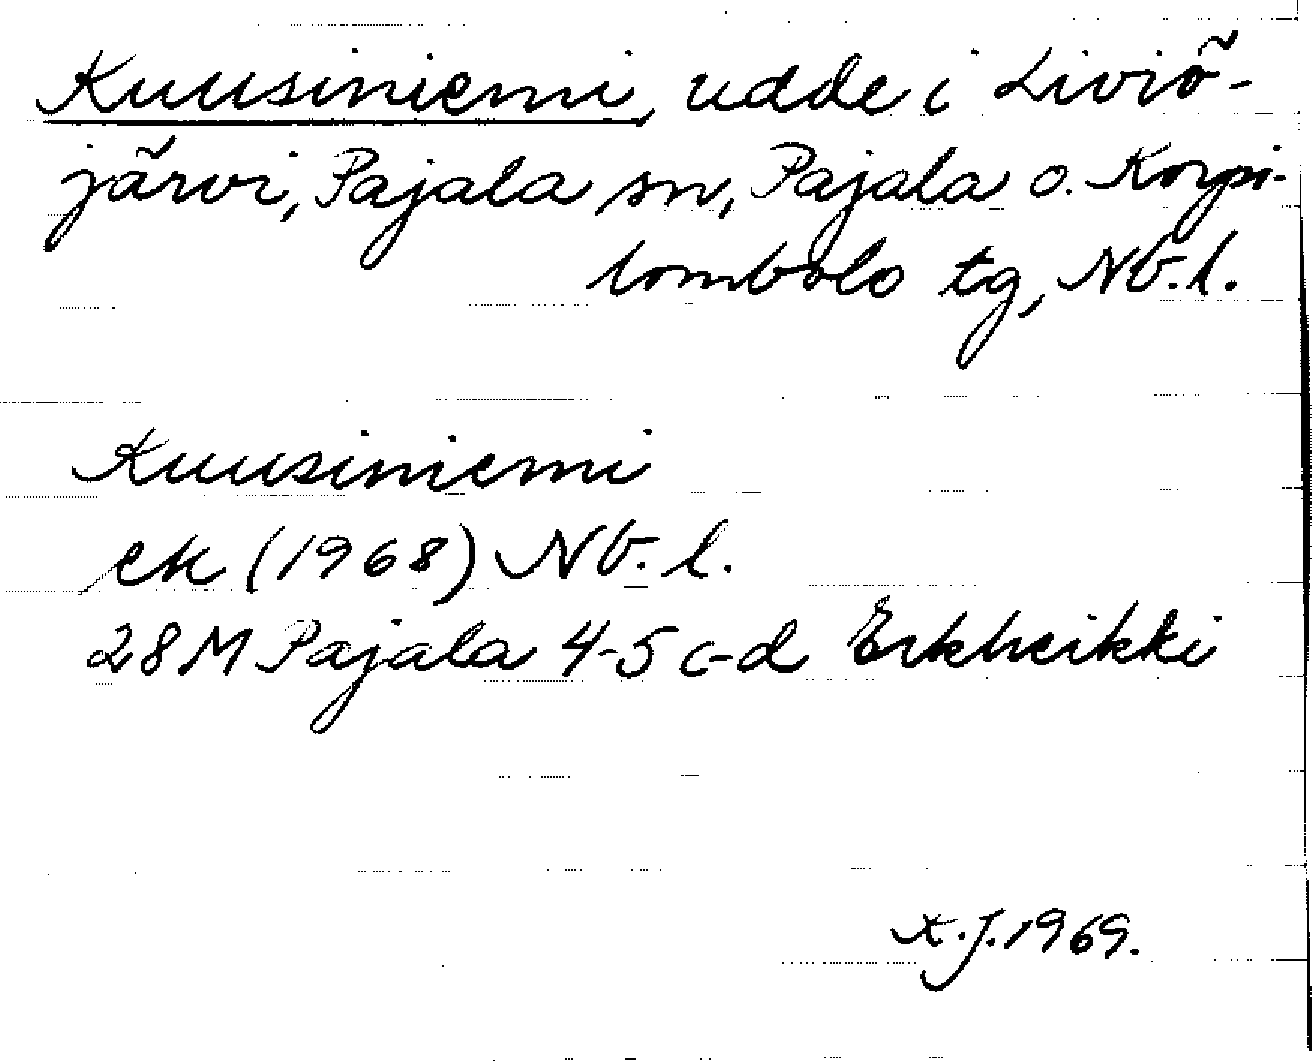 Kuusiniemi, udde i Liviö-
järvi, Pajala sn, Pajala o. Korpi-
lombolo tg, Nb. l.
Kuusiniemi
ek (1968) Nb. l.
28M Pajala 4-5 c-d Erkheikki
X.J. 1969.